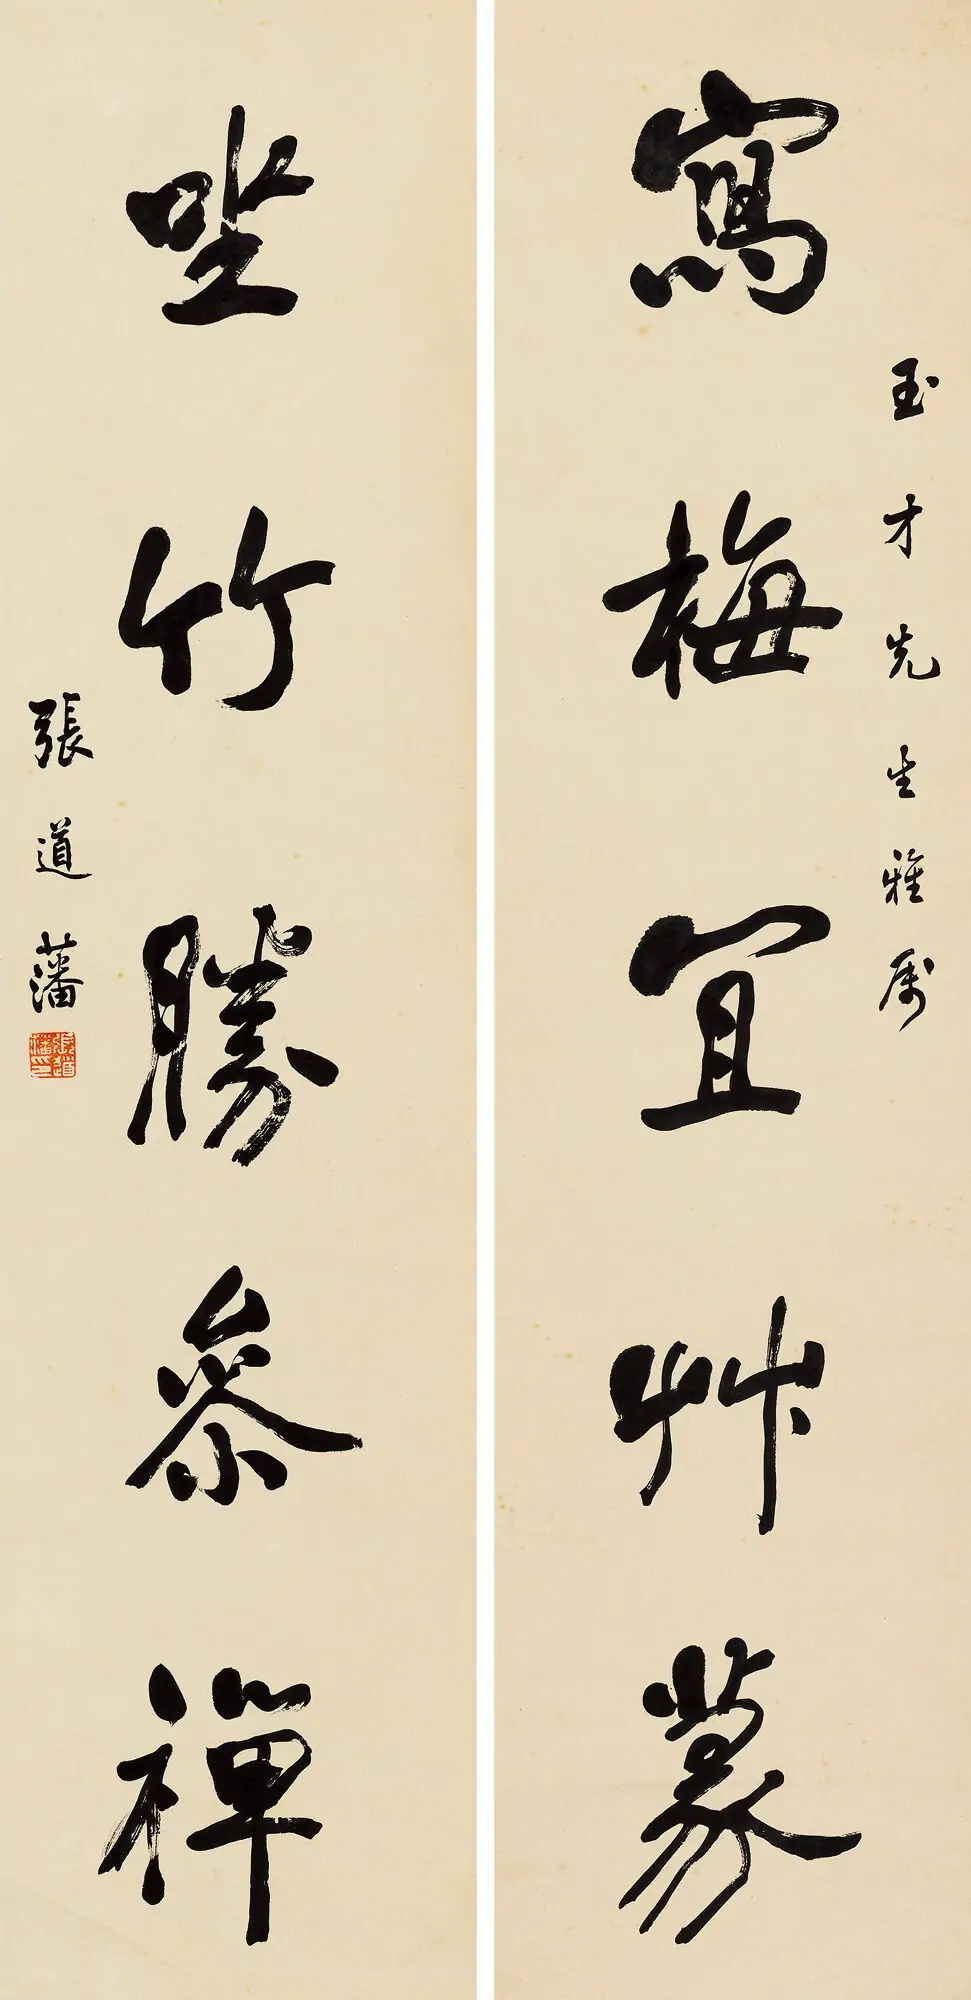 玉才先生雅屬
寫梅宜艸篆
坐竹勝參禪
張道藩
張道藩印